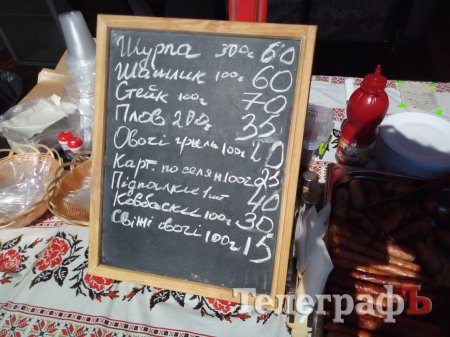 Шурпа 300г 60
Шашлик 100г 60
Стейк 100г 70
Плов 200г 35
Овочі гриль 100г 20
Карт. по селян 100г 25
Підпалки 1шт 40
Ковбаски 100г 30
Свіжі овочі 100г 15
ТелеграфЪ